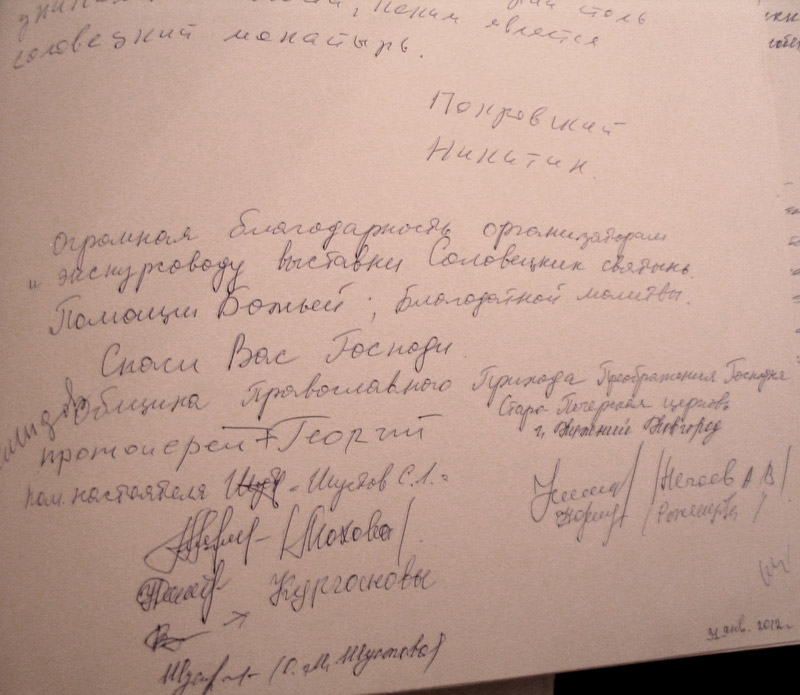 столь
, каким явлется
Соловецкий монастырь.
Покровский
Никитин.
Огромная благодарность организаторам
и экскурсоводу выставки Соловецких святынь.
Помощи Божьей, благодатной молитвы.
Спаси Вас Господи.
Община Православного Прихода Преображения Господня
Старо Печерская церковь
г. Нижний Новгород
протоиерей Георгий
пом. настоятеля Шустов С.Л.
/Нечаев А В/
/Мохова/
Кургановы
31 янв. 2012 г.
(О. М. Шустова)